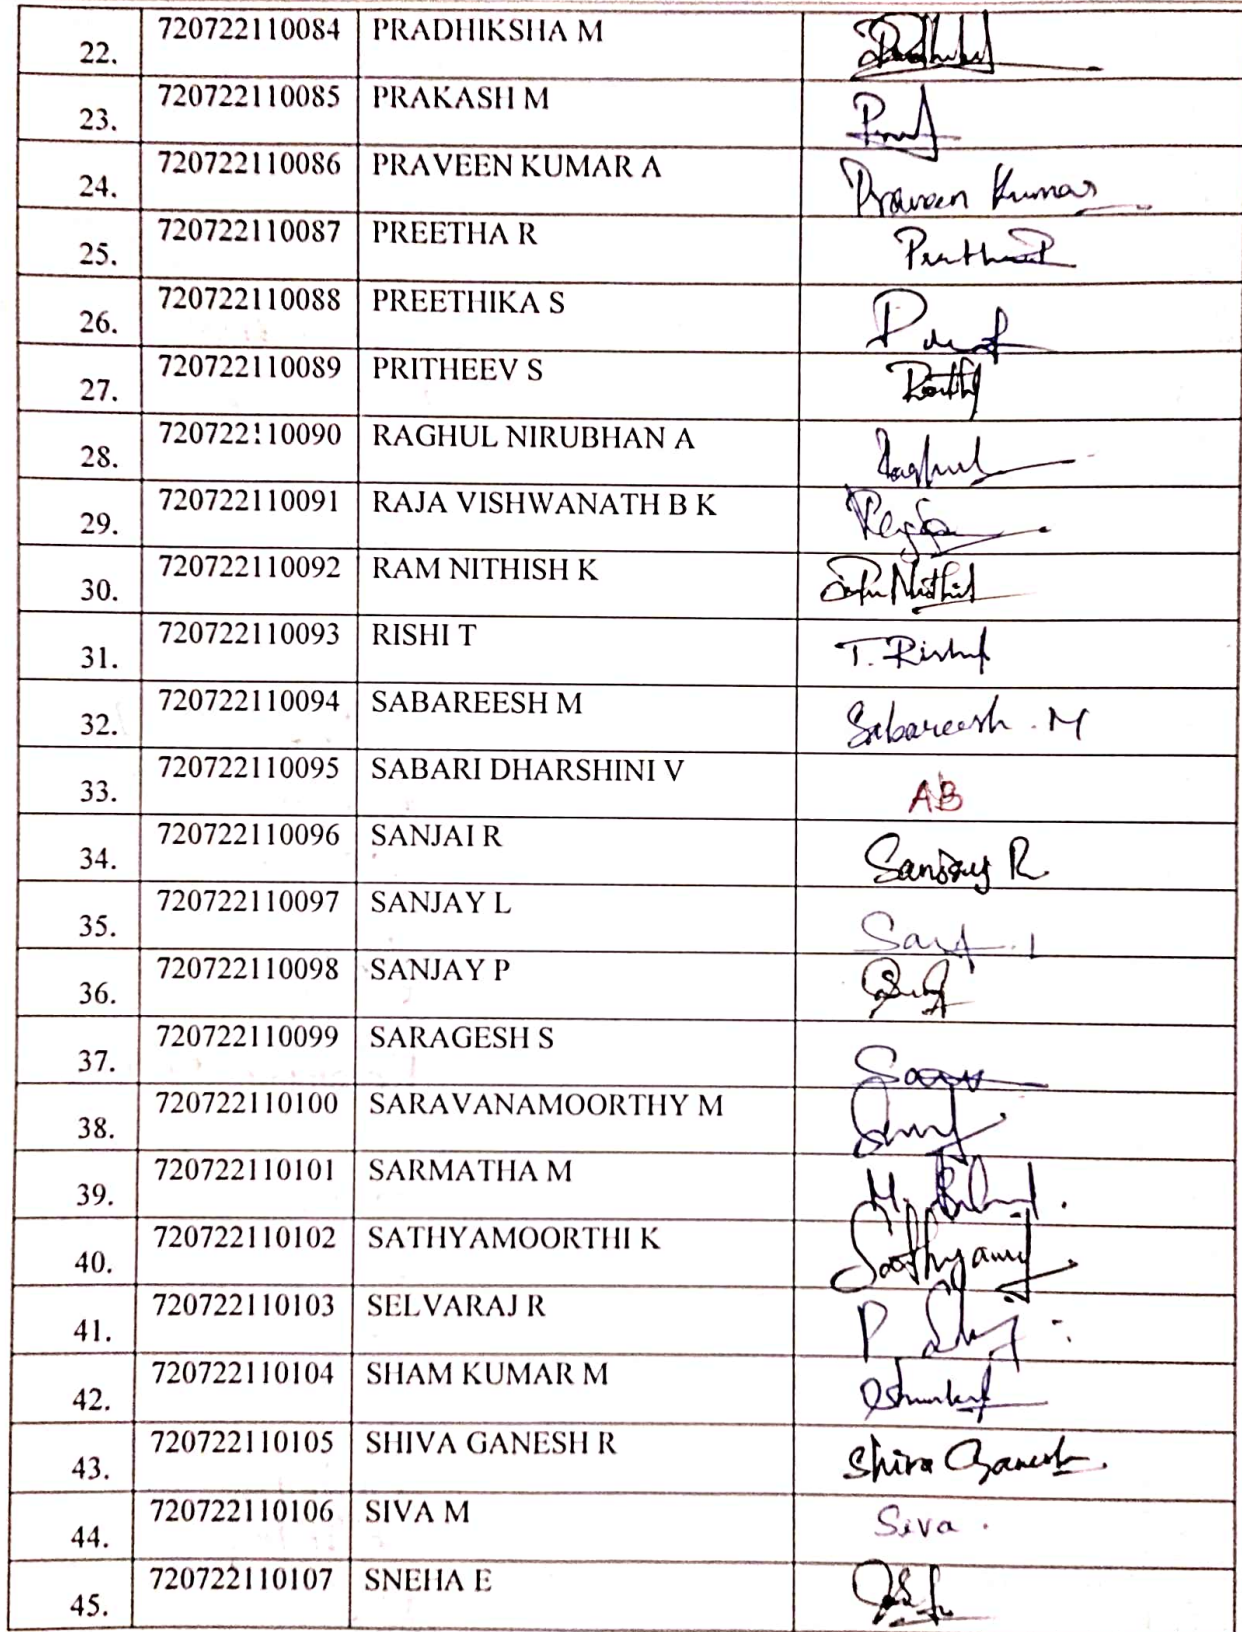 22. 720722110084 PRADHIKSHA M
23. 720722110085 PRAKASH M
24. 720722110086 PRAVEEN KUMAR A Praveen Kumar
25. 720722110087 PREETHA R
26. 720722110088 PREETHIKA S
27. 720722110089 PRITHEEV S
28. 720722110090 RAGHUL NIRUBHAN A Raghul
29. 720722110091 RAJA VISHWANATH B K
30. 720722110092 RAM NITHISH K
31. 720722110093 RISHI T T. Rishi
32. 720722110094 SABAREESH M Sabareesh . M
33. 720722110095 SABARI DHARSHINI V AB
34. 720722110096 SANJAI R Sanjay R
35. 720722110097 SANJAY L
36. 720722110098 SANJAY P
37. 720722110099 SARAGESH S
38. 720722110100 SARAVANAMOORTHY M
39. 720722110101 SARMATHA M
40. 720722110102 SATHYAMOORTHI K
41. 720722110103 SELVARAJ R
42. 720722110104 SHAM KUMAR M
43. 720722110105 SHIVA GANESH R Shiva Ganesh.
44. 720722110106 SIVA M Siva .
45. 720722110107 SNEHA E